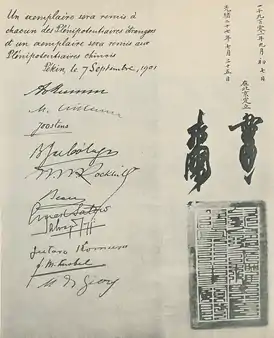 Un exemplaire sera remis à
chacun des Plénipotentiaires étrangers
et un exemplaire sera remis aux
Plénipotentiaires chinois
Pékin, le 7 Septembre, 1901
A. v. Mumm
M. Czikann
Joostens
B. J. de Cologan
W. W. Rockhill
Beau
Ernest Satow
Salvago
Jutaro Komura
F. M. Knobel
M. de Giers
一千九百零一年九月初七日
在北京定立
光緒二十七年七月二十五日